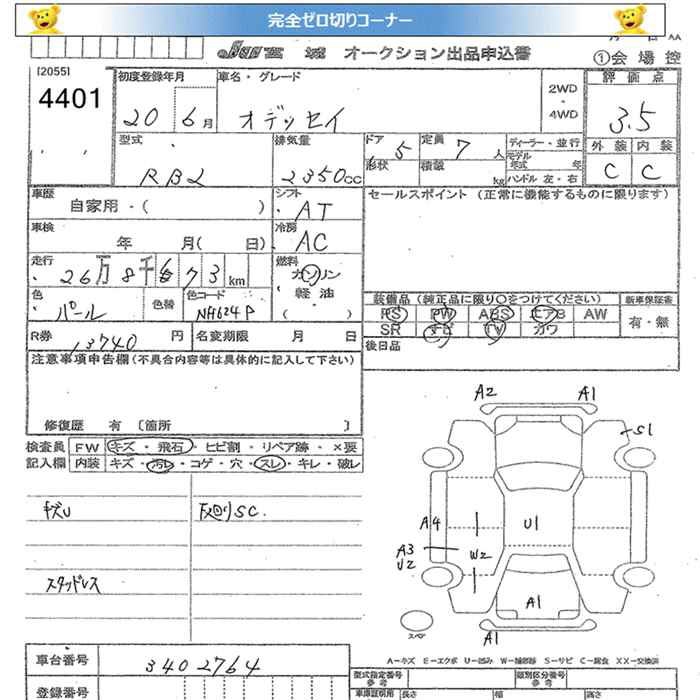 完全ゼロ切りコーナー
オークション出品申込書
①会場控
[2055]
4401
初度登録年月
20 6月
車名・グレード
オデッセイ
2WD
・
4WD
評価点
3.5
外装 内装
C C
型式
RB1
排気量
2350cc
ドア
形状
5
定員
7人
積載
kg
ディーラー・並行
モデル年式 年
ハンドル 左・右
車歴
自家用・( )
シフト
AT
セールスポイント (正常に機能するものに限ります)
車検
年 月( 日)
冷房
AC
走行
26万8千673km
燃料
ガソリン
・
軽油
( )
色
パール
色替
色コード
NH624P
装備品(純正品に限り○をつけてください)
PS PW ABS エアB AW
SR ナビ TV カワ
新車保証書
有・無
R券
13740円
名変期限 月 日
後日品
注意事項申告欄(不具合内容等は具体的に記入して下さい)
修復歴 有 〔箇所 〕
検査員記入欄
FW キズ・飛石・ヒビ割・リペア跡・×要
内装 キズ・汚れ・コゲ・穴・スレ・キレ・破レ
キズU
下廻りSC.
スタッドレス
A2
A1
S1
A4
U1
A3
U2
W2
A1
A1
スペア
A－キズ E－エクボ U－凹み W－補修跡 S－サビ C－腐食 XX－交換済
車台番号
3402764
登録番号
型式指定番号
参考
類別区分番号
参考
車庫証明用
長さ
幅
高さ